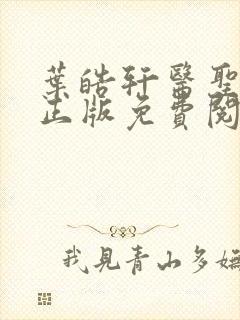 葉皓軒醫聖
正版免費閱
我見青山多嫵